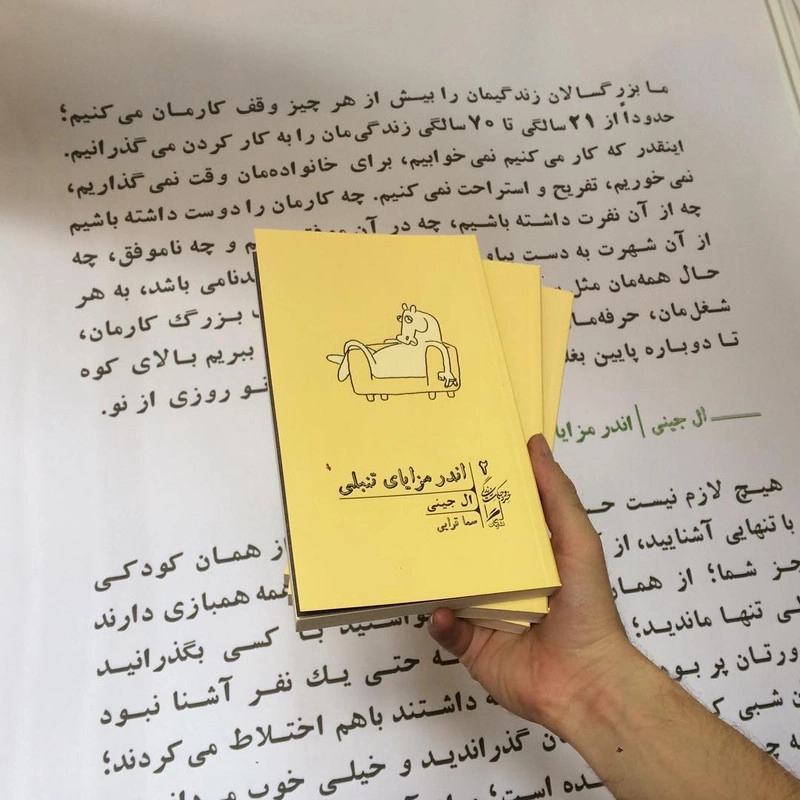 ما بزرگسالان زندگیمان را بیش از هر چیز وقف کارمان می‌کنیم؛
حدوداً از ۲۱ سالگی تا ۷۰ سالگی زندگی‌مان را به کار کردن می‌گذرانیم.
اینقدر که کار می‌کنیم نمی‌خوابیم، برای خانواده‌مان وقت نمی‌گذاریم،
نمی‌خوریم، تفریح و استراحت نمی‌کنیم. چه کارمان را دوست داشته باشیم
چه از آن نفرت داشته باشیم، چه در آن و چه ناموفق، چه
از آن شهرت به دست بدنامی باشد، به هر
حال همه‌مان مثل بزرگ کارمان،
شغل‌مان، حرفه‌ما ببریم بالای کوه
تا دوباره پایین نو روزی از نو.
آل جینی | اندر مزایا
اندر مزایای تنبلی
۲
آل جینی
سما قرایی
خرد و حکمت زندگی
نشر گمان
هیچ لازم نیست
با تنهایی آشنایید، از از همان کودکی
جز شما؛ از همان همه همبازی دارند
تنها ماندید؛ با کسی بگذرانید
پر حتی یك نفر آشنا نبود
شبی داشتند باهم اختلاط می‌کردند؛
گذراندید و خیلی خوب
است؛